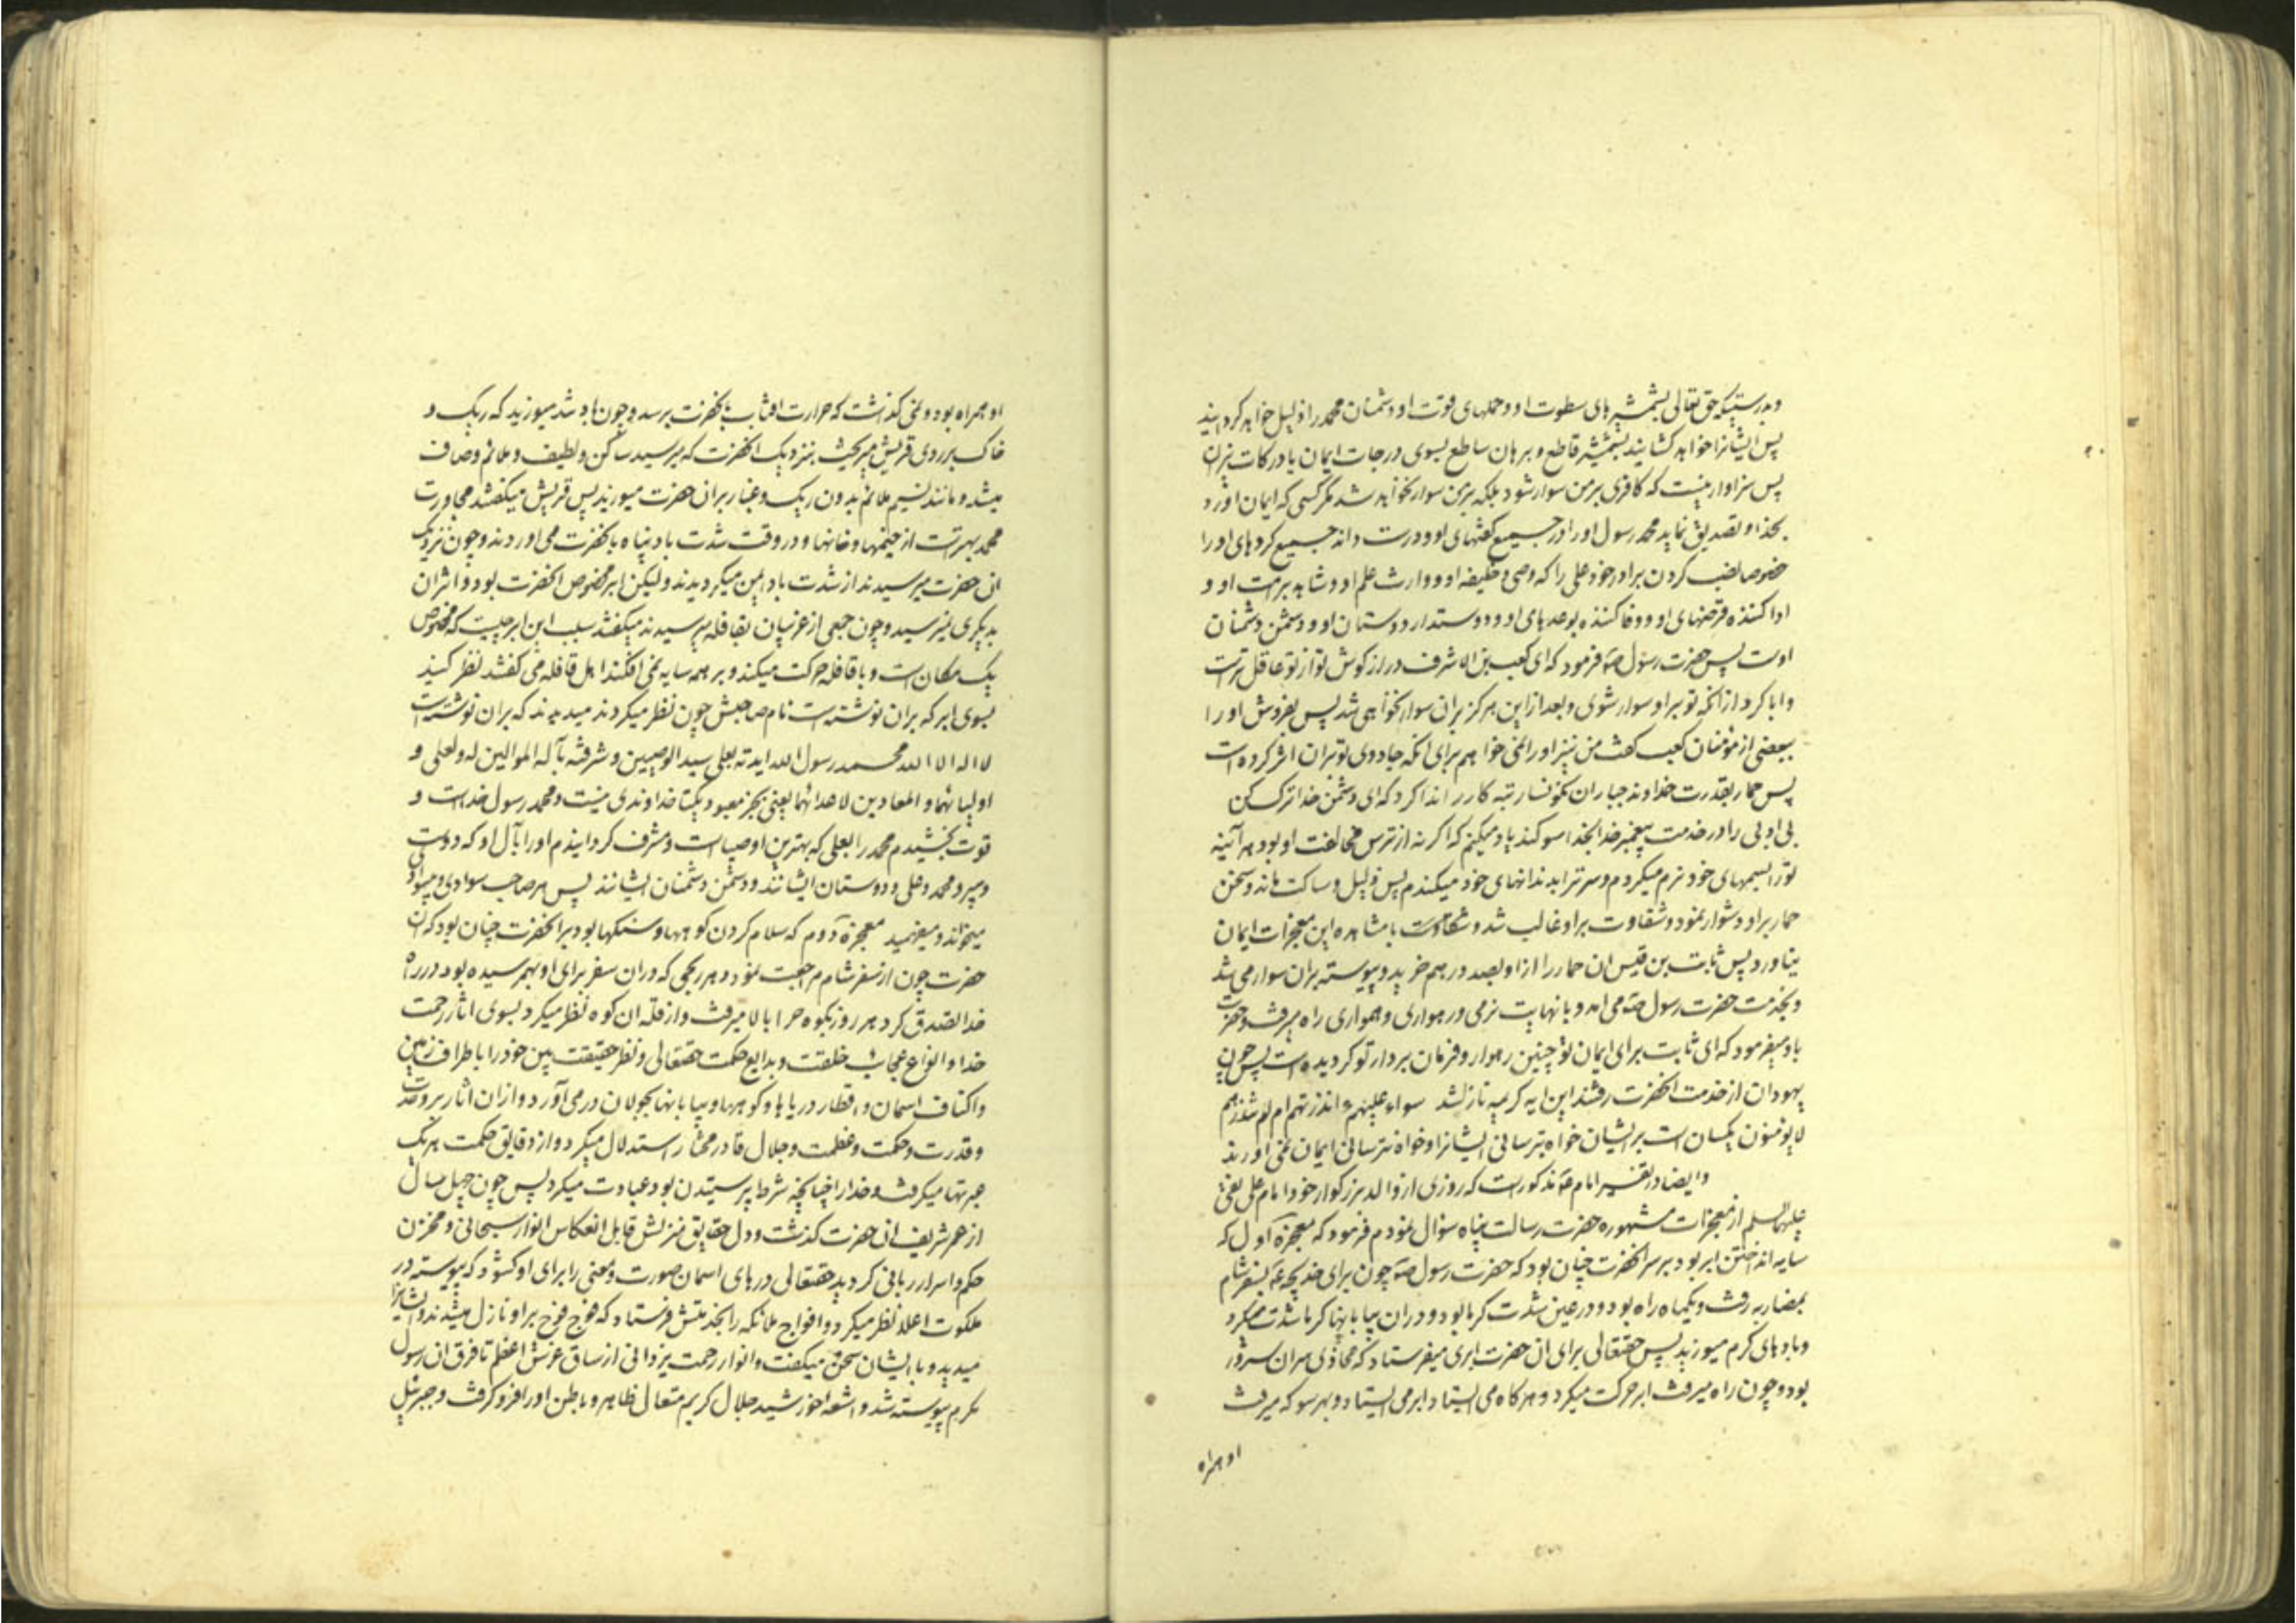 و بدرستیکه حق تعالی بشمشیرهای سطوت او و حملهای قوت او دشمنان محمد را ذلیل خواهد کردانید
پس ایشانرا خواهد کشانید بشمشیر قاطع و برهان ساطع بسوی درجات ایمان یا درکات نیران
پس سزاوار نیست که کافری بر من سوار شود بلکه بر من سوار نخواهد شد مکر کسی که ایمان اورد
بخدا و تصدیق نماید محمد رسول او را در جمیع کفتهای او و درست داند جمیع کردهای او را
خصوصا نصب کردن برادر خود علی را که وصی و خلیفه او و وارث علم او و شاهد بر امت او و
ادا کننده قرضهای او و وفا کننده بوعدهای او و دوستدار دوستان او و دشمن دشمنان
اوست پس حضرت رسول صه فرمود که ای کعب بن الاشرف دراز کوش تو از تو عاقل تر است
و ابا کرد از انکه تو بر او سوار شوی و بعد از این هرکز بر ان سوار نخواهی شد پس بفروش او را
ببعضی از مؤمنان کعب کفت من نیز او را نمی خواهم برای انکه جادوی تو بر ان اثر کرده است
پس حمار بقدرت خداوند جباران نکونسار تبه کار را ندا کرد که ای دشمن خدا ترک کن
بی ادبی را در خدمت پیغمبر خدا بخدا سوکند یاد میکنم که اکر نه از ترس مخالفت او بود هر آینه
تو را بسمهای خود نرم میکردم و سر ترا بدندانهای خود میکندم پس ذلیل و ساکت ماند و سخن
حمار بر او دشوار نمود و شقاوت بر او غالب شد و با مشاهده این معجزات ایمان
نیاورد پس ثابت بن قیس ان حمار را از او بصد درهم خرید و پیوسته بر ان سوار می شد
و بخدمت حضرت رسول صه می امد و با نهایت نرمی و رهواری و همواری راه میرفت و حضرت
باو میفرمود که ای ثابت برای ایمان تو چنین رهوار و فرمان بردار تو کردیده است پس چون
یهودان از خدمت انحضرت رفتند این ایه کریمه نازل شد سواء علیهم ءانذرتهم ام لم تنذرهم
لا یؤمنون یکسان است بر ایشان خواه بترسانی ایشانرا و خواه نترسانی ایمان نمی اورند
و ایضا در تفسیر امام عه مذکور است که روزی از والد بزرکوار خود امام علی نقی
علیهما السلم از معجزات مشهوره حضرت رسالت پناه سؤال نمودم فرمود که معجزه اول که
سایه انداختن ابر بود بر سر انحضرت چنان بود که حضرت رسول صه چون برای خدیجه عه بسفر شام
بمضاربه رفت و یکماه راه بود و در عین شدت کرما بود و در ان بیابانها کرما شدت میکرد
و بادهای کرم میوزید پس حقتعالی برای ان حضرت ابری میفرستاد که محاذی سر ان سرور
بود و چون راه میرفت ابر حرکت میکرد و هر کاه می ایستاد ابر می ایستاد و بهر سو که میرفت
او همراه
او همراه بود و نمی کذاشت که حرارت افتاب بانحضرت برسد و چون باد شدید میوزید که ریک و
خاک بر روی قریش میریخت بنزدیک انحضرت که میرسید ساکن و لطیف و ملائم و صاف
میشد و مانند نسیم ملائم بدون ریک و غبار بر ان حضرت میوزید پس قریش میکفتند مجاورت
محمد بهتر است از خیمها و خانها و در وقت شدت باد پناه بانحضرت می اوردند و چون نزدیک
ان حضرت میرسیدند از شدت باد ایمن میکردیدند و لیکن ابر مخصوص انحضرت بود و اثر ان
بدیکری نمیرسید و چون جمعی از غریبان بقافله میرسیدند میکفتند سبب این ابر چیست که مخصوص
یک مکان است و با قافله حرکت میکند و بر همه سایه نمی افکند اهل قافله می کفتند نظر کنید
بسوی ابر که بر ان نوشته است نام صاحبش چون نظر میکردند میدیدند که بر ان نوشته است
لا اله الا الله محمد رسول الله ایدته بعلی سید الوصیین و شرفته بآله الموالین له و لعلی و
اولیائهما و المعادین لاعدائهما یعنی بجز معبود یکتا خداوندی نیست و محمد رسول خداست و
قوت بخشیدم محمد را بعلی که بهترین اوصیاست و مشرف کردانیدم او را بآل او که دوست
و پیرو محمد و علی و دوستان ایشانند و دشمن دشمنان ایشانند پس هر صاحب سوادی و بیسوادی
میخواند و میفهمید معجزه دوم که سلام کردن کوهها و سنکها بود بر انحضرت چنان بود که ان
حضرت چون از سفر شام مراجعت نمود و هر ربحی که در ان سفر برای او بهمرسیده بود در راه
خدا تصدق کرد هر روز بکوه حرا بالا میرفت و از قله ان کوه نظر میکرد بسوی اثار رحمت
خدا و انواع عجایب خلقت و بدایع حکمت حقتعالی و نظر حقیقت بین خود را باطراف زمین
و اکناف اسمان و اقطار دریاها و کوهها و بیابانها بجولان در می آورد و از ان اثار بر وحدت
و قدرت و حکمت و عظمت و جلال قادر مختار استدلال میکرد و از دقایق حکمت هر یک
عبرتها میکرفت و خدا را چنانچه شرط پرستیدن بود عبادت میکرد پس چون چهل سال
از عمر شریف ان حضرت کذشت و دل حقایق منزلش قابل انعکاس انوار سبحانی و مخزن
حکم و اسرار ربانی کردید حقتعالی درهای اسمان صورت و معنی را برای او کشود که پیوسته در
ملکوت اعلا نظر میکرد و افواج ملائکه را بخدمتش فرستاد که فوج فوج بر او نازل میشدند و ایشانرا
میدید و با ایشان سخن میکفت و انوار رحمت یزدانی از ساق عرش اعظم تا فرق ان رسول
مکرم پیوسته شد و اشعه خورشید جلال کریم متعال ظاهر و باطن او را فرو کرفت و جبرئیل